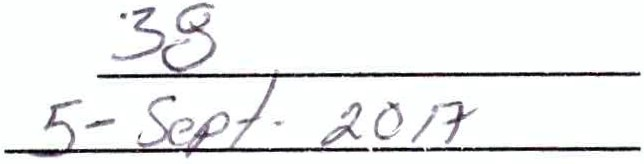 38
5- Sept. 2017